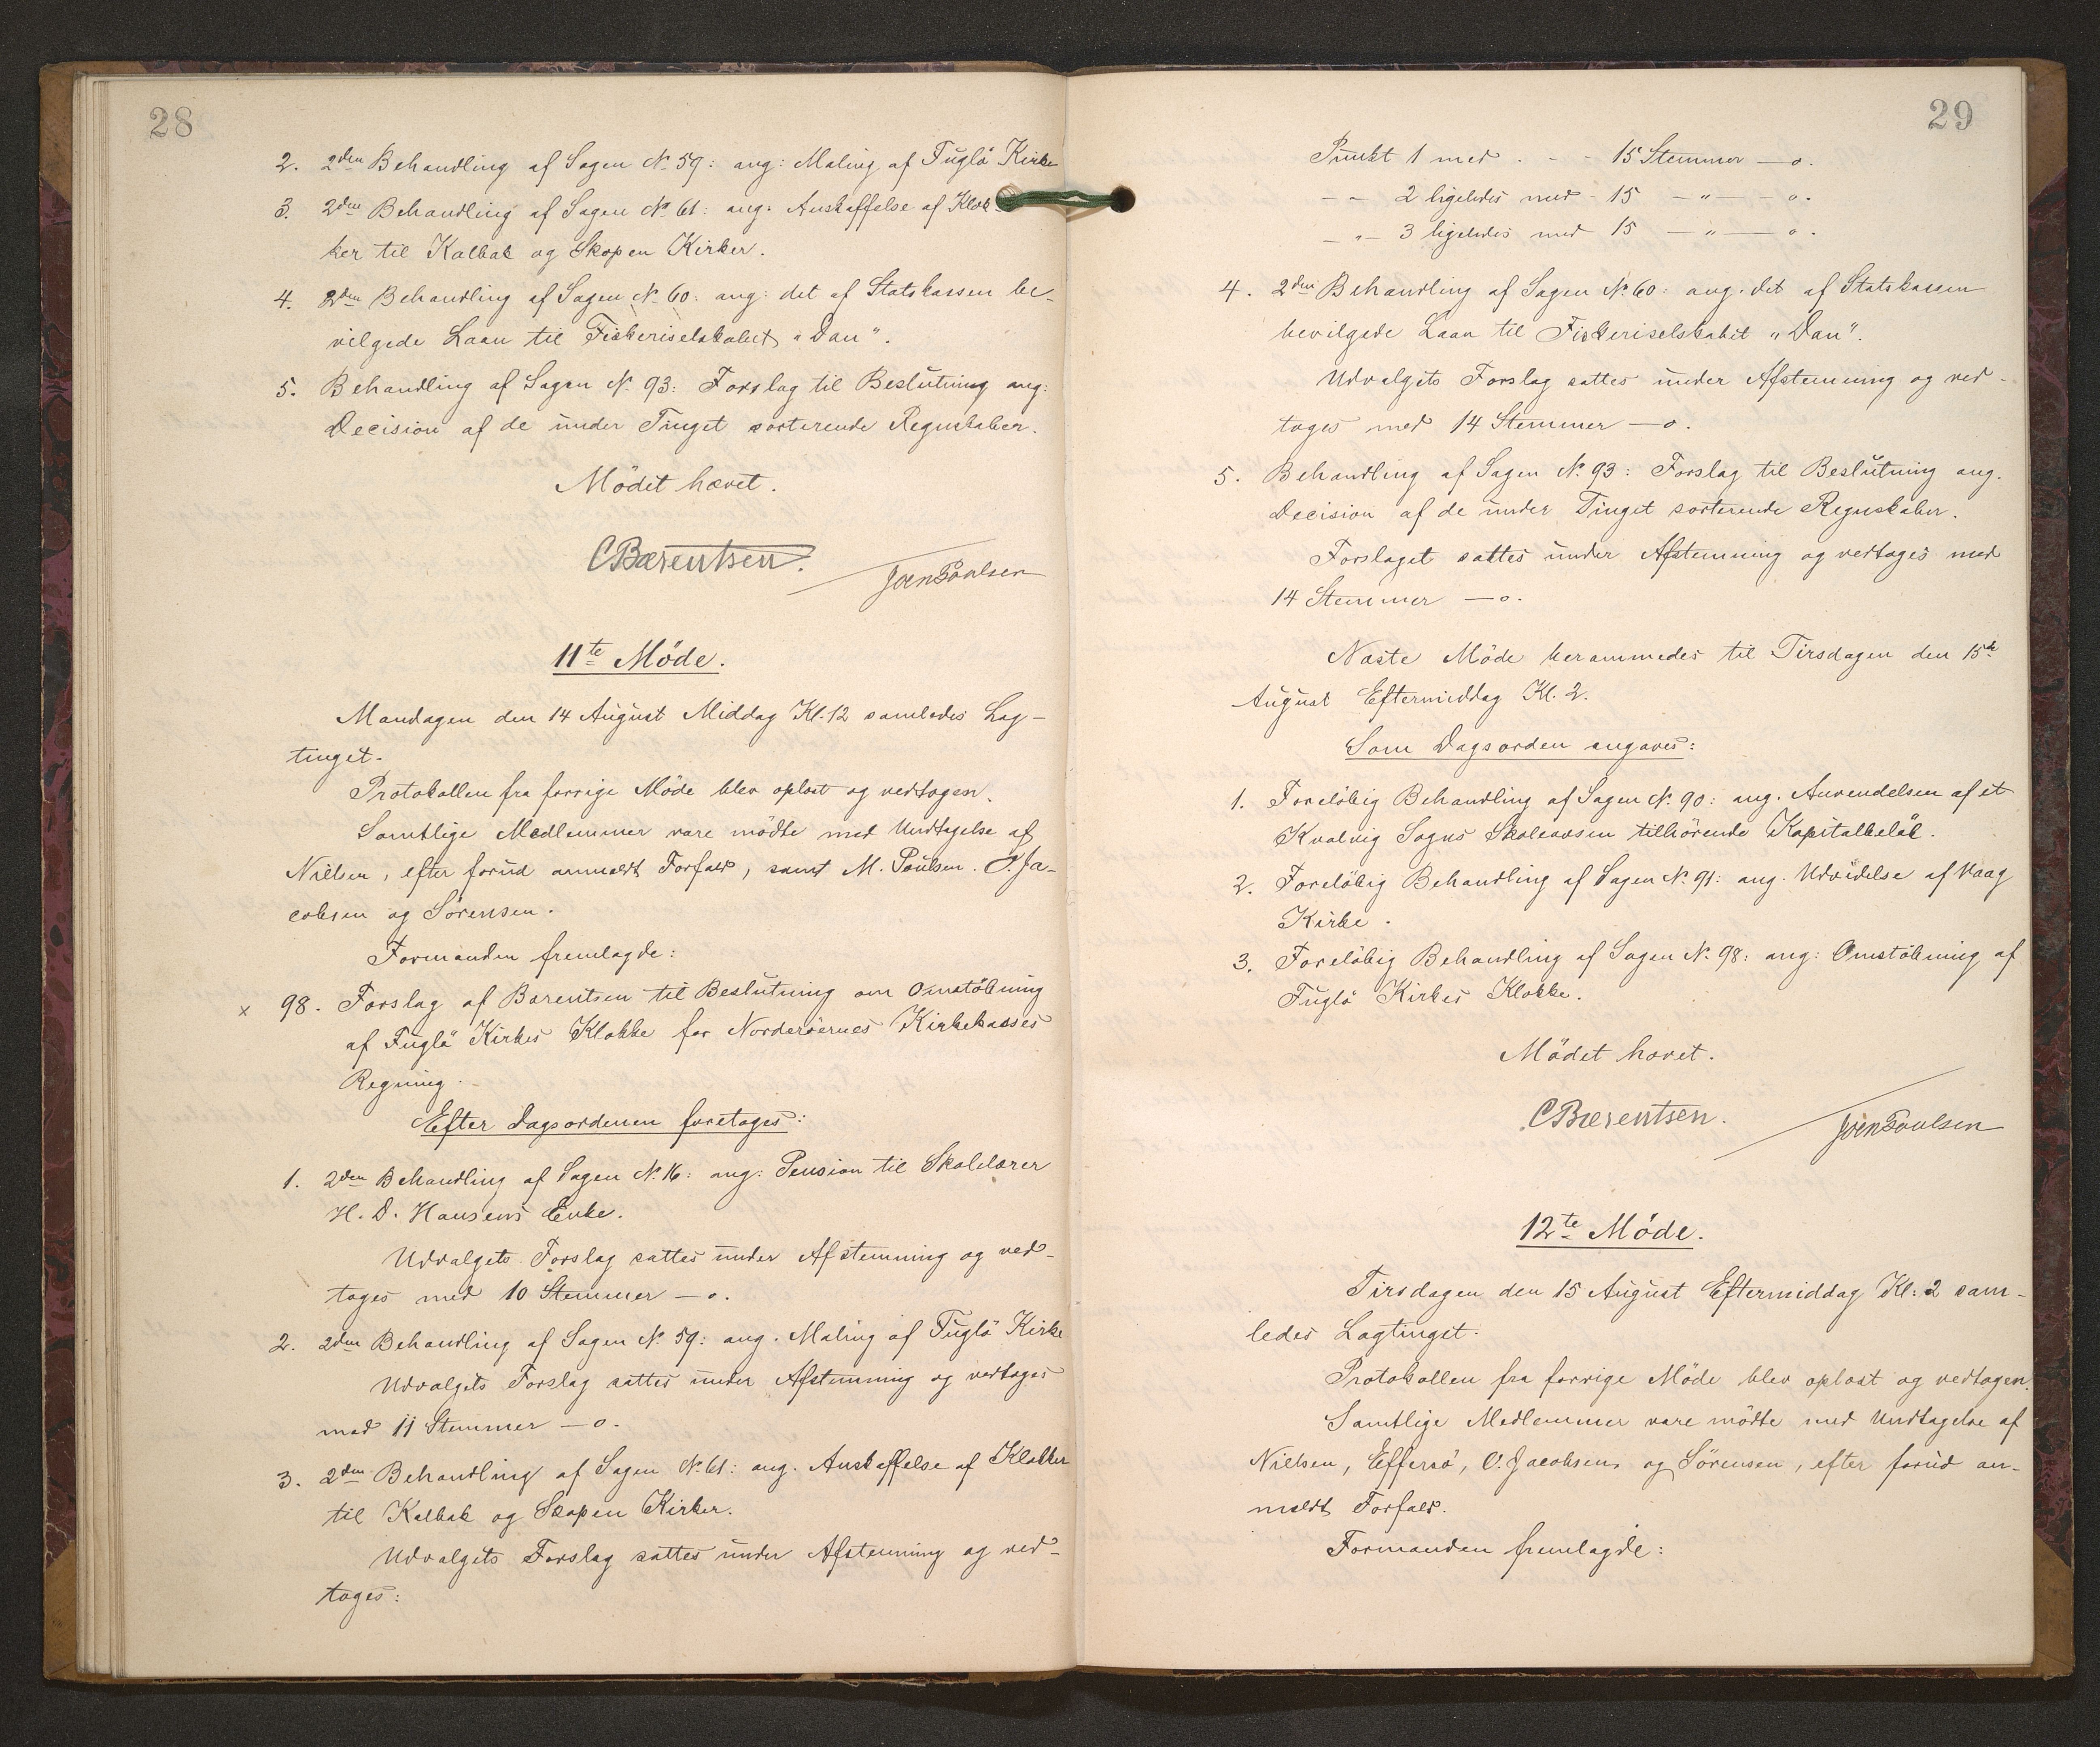 28
2. 2den Behandling af Sagen No 59: ang: Maling af Fuglö Kirke
3. 2den Behandling af Sagen No 61: ang: Anskaffelse af Klok-
ker til Kalbak og Skopen Kirker.
4. 2den Behandling af Sagen No 60: ang: det af Statskassen be-
vilgede Laan til Fiskeriselskabet "Dan".
5. Behandling af Sagen No 93: Forslag til Beslutning ang:
Decision af de under Tinget sorterende Regnskaber.
Mödet hævet.
C Bærentsen.
Joen Poulsen
11te Möde.
Mandagen den 14 August Middag Kl. 12 samledes Lag-
tinget.
Protokollen fra forrige Möde blev oplæst og vedtagen.
Samtlige Medlemmer vare mödte med Undtagelse af
Nielsen, efter forud anmeldt Forfald, samt M. Poulsen. O. Ja-
cobsen og Sörensen.
Formanden fremlagde:
x 98. Forslag af Bærentsen til Beslutning om Omstöbning
af Fuglö Kirkes Klokke for Norderöernes Kirkekasses
Regning.
Efter Dagsordenen foretoges:
1. 2den Behandling af Sagen No 16: ang: Pension til Skolelærer
H. D. Hansens Enke.
Udvalgets Forslag sattes under Afstemning og ved-
toges med 10 Stemmer — o.
2. 2den Behandling af Sagen No 59: ang. Maling af Fuglö Kirke
Udvalgets Forslag sattes under Afstemning og vedtoges
med 11 Stemmer — o.
3. 2den Behandling af Sagen No 61: ang. Anskaffelse af Klokker
til Kalbak og Skopen Kirker.
Udvalgets Forslag sattes under Afstemning og ved-
toges:
29
Punkt 1 med . - - 15 Stemmer — o.
- - 2 ligeledes med - 15 — " — - o.
- " - 3 ligeledes med 15 — " — o.
4. 2den Behandling af Sagen No 60: ang. det af Statskassen
bevilgede Laan til Fiskeriselskabet "Dan".
Udvalgets Forslag sattes under Afstemning og ved-
toges med 14 Stemmer — o.
5. Behandling af Sagen No 93: Forslag til Beslutning ang.
Decision af de under Tinget sorterende Regnskaber.
Forslaget sattes under Afstemning og vedtoges med
14 Stemmer — o.
Næste Möde berammedes til Tirsdagen den 15de
August Eftermiddag Kl. 2.
Som Dagsorden angaves:
1. Foreløbig Behandling af Sagen No 90: ang. Anvendelsen af et
Kvalvig Sogns Skolevæsen tilhörende Kapitalbelöb.
2. Forelöbig Behandling af Sagen No 91: ang. Udvidelse af Vaag
Kirke.
3. Forelöbig Behandling af Sagen No 98: ang: Omstöbning af
Fuglö Kirkes Klokke.
Mödet hævet.
C Bærentsen.
Joen Poulsen
12te Möde.
Tirsdagen den 15 August Eftermiddag Kl: 2 sam-
ledes Lagtinget.
Protokollen fra forrige Möde blev oplæst og vedtagen.
Samtlige Medlemmer vare mödte med Undtagelse af
Nielsen, Effersö, O. Jacobsen og Sörensen, efter forud an-
meldt Forfald.
Formanden fremlagde: